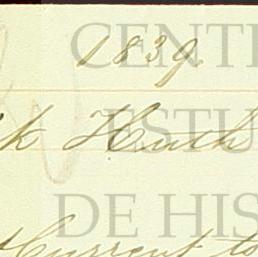 1839.
k Huth
Current to
CENT
ESTU
DE HIS